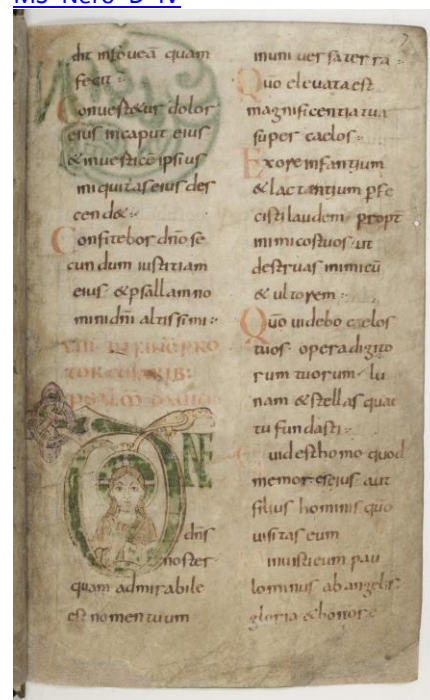 MS Nero D IV
dit in fouea quam
fecit
Conuertetur dolor
eius in caput eius
& in uertice ipsius
iniquitas eius des
cendet
Confitebor dño se
cundum iustitiam
eius & psallam no
mini dñi altissimi
VIII IN FINEM PRO
TORCULARIB:
PSALM DAVID
DNE
dñs
noster
quam admirabile
est nomen tuum
7
in uniuersa terra
Quo eleuata est
magnificentia tua
super caelos
Ex ore infantium
& lactantium pfe
cisti laudem propt
inimicos tuos ut
destruas inimicū
& ultorem
Quō uidebo caelos
tuos opera digito
rum tuorum lu
nam & stellas quae
tu fundasti
Quid est homo quod
memor es eius aut
filius hominis quō
uisitas eum
Minuisti eum pau
lominus ab angelis
gloria & honore